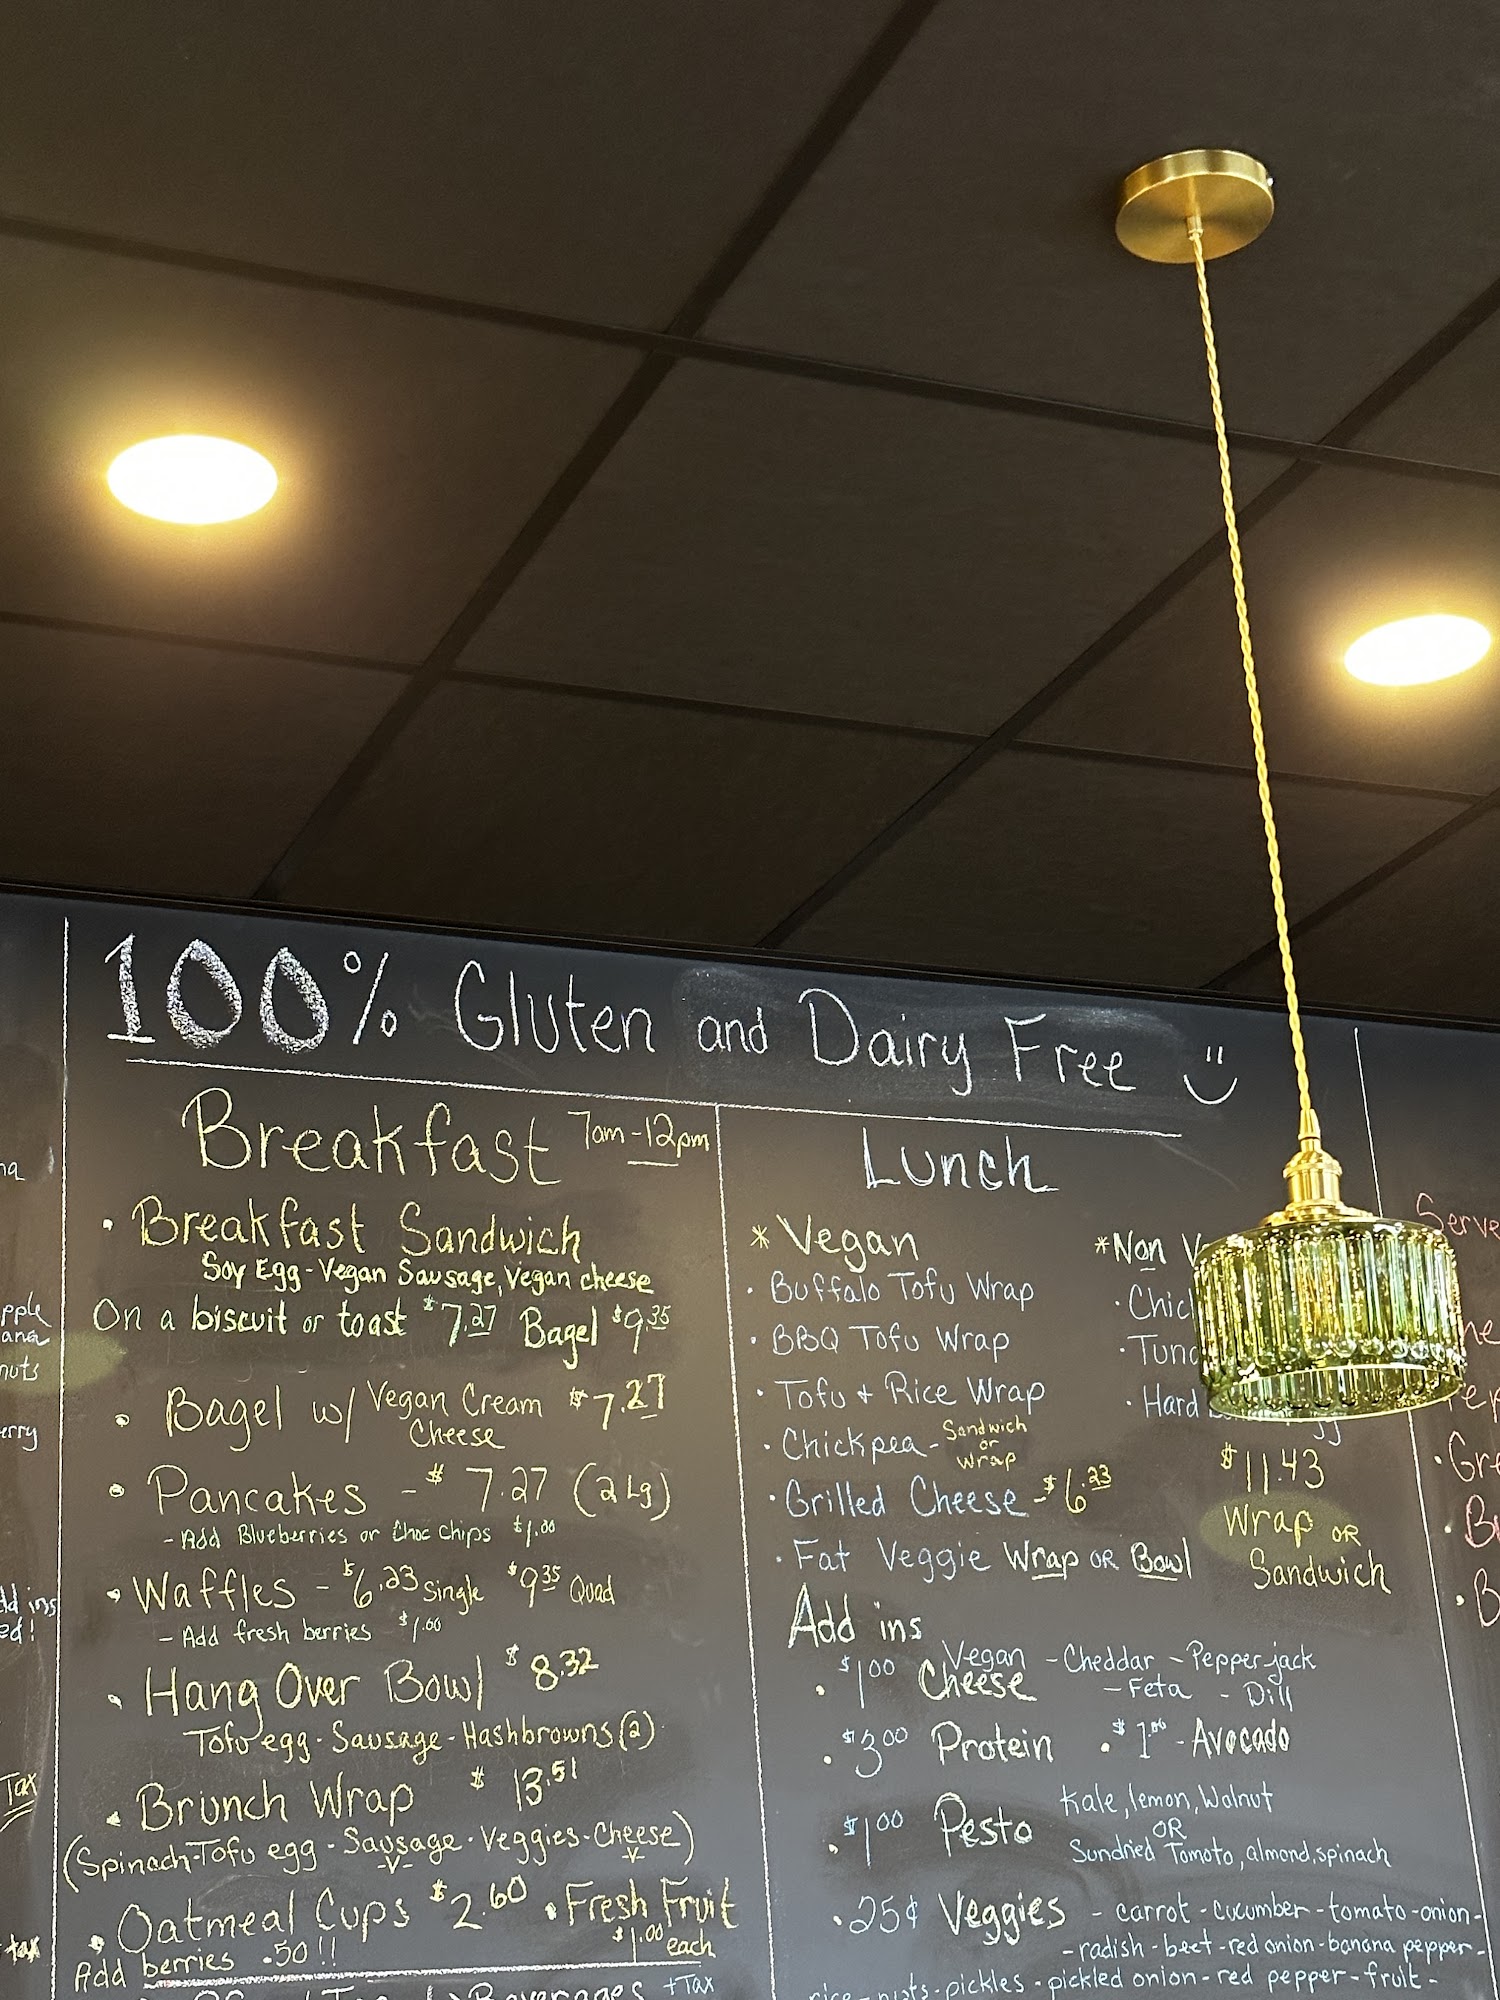 100% Gluten and Dairy Free
Breakfast 7am-12pm
• Breakfast Sandwich
Soy Egg-Vegan Sausage, Vegan cheese
On a biscuit or toast $7.27 Bagel $9.35
• Bagel w/ Vegan Cream $7.27
Cheese
• Pancakes - $7.27 (2 Lg)
- Add Blueberries or Choc Chips $1.00
• Waffles - $6.23 Single $9.35 Quad
- Add fresh berries $1.00
• Hang Over Bowl $8.32
Tofu egg - Sausage - Hashbrowns (2)
• Brunch Wrap $13.51
(Spinach-Tofu egg - Sausage - Veggies - Cheese)
V V
• Oatmeal Cups $2.60 • Fresh Fruit
Add berries .50!! $1.00 each
Beverages +Tax
Lunch
* Vegan
• Buffalo Tofu Wrap
• BBQ Tofu Wrap
• Tofu + Rice Wrap
• Chickpea - Sandwich
or
Wrap
• Grilled Cheese - $6.23
• Fat Veggie Wrap OR Bowl
*Non V
• Chic
• Tuna
• Hard
$11.43
Wrap OR
Sandwich
Add ins
• $1.00 Vegan Cheese - Cheddar - Pepperjack
- Feta - Dill
• $3.00 Protein • $1.00 - Avocado
• $1.00 Pesto Kale, lemon, Walnut
OR
Sundried Tomato, almond, spinach
• 25¢ Veggies - carrot - cucumber - tomato - onion -
- radish - beet - red onion - banana pepper -
rice - nuts - pickles - pickled onion - red pepper - fruit -
pple
ana
nuts
erry
dd ins
ed!
Tax
tax
Serve
• Gre
• B
• B